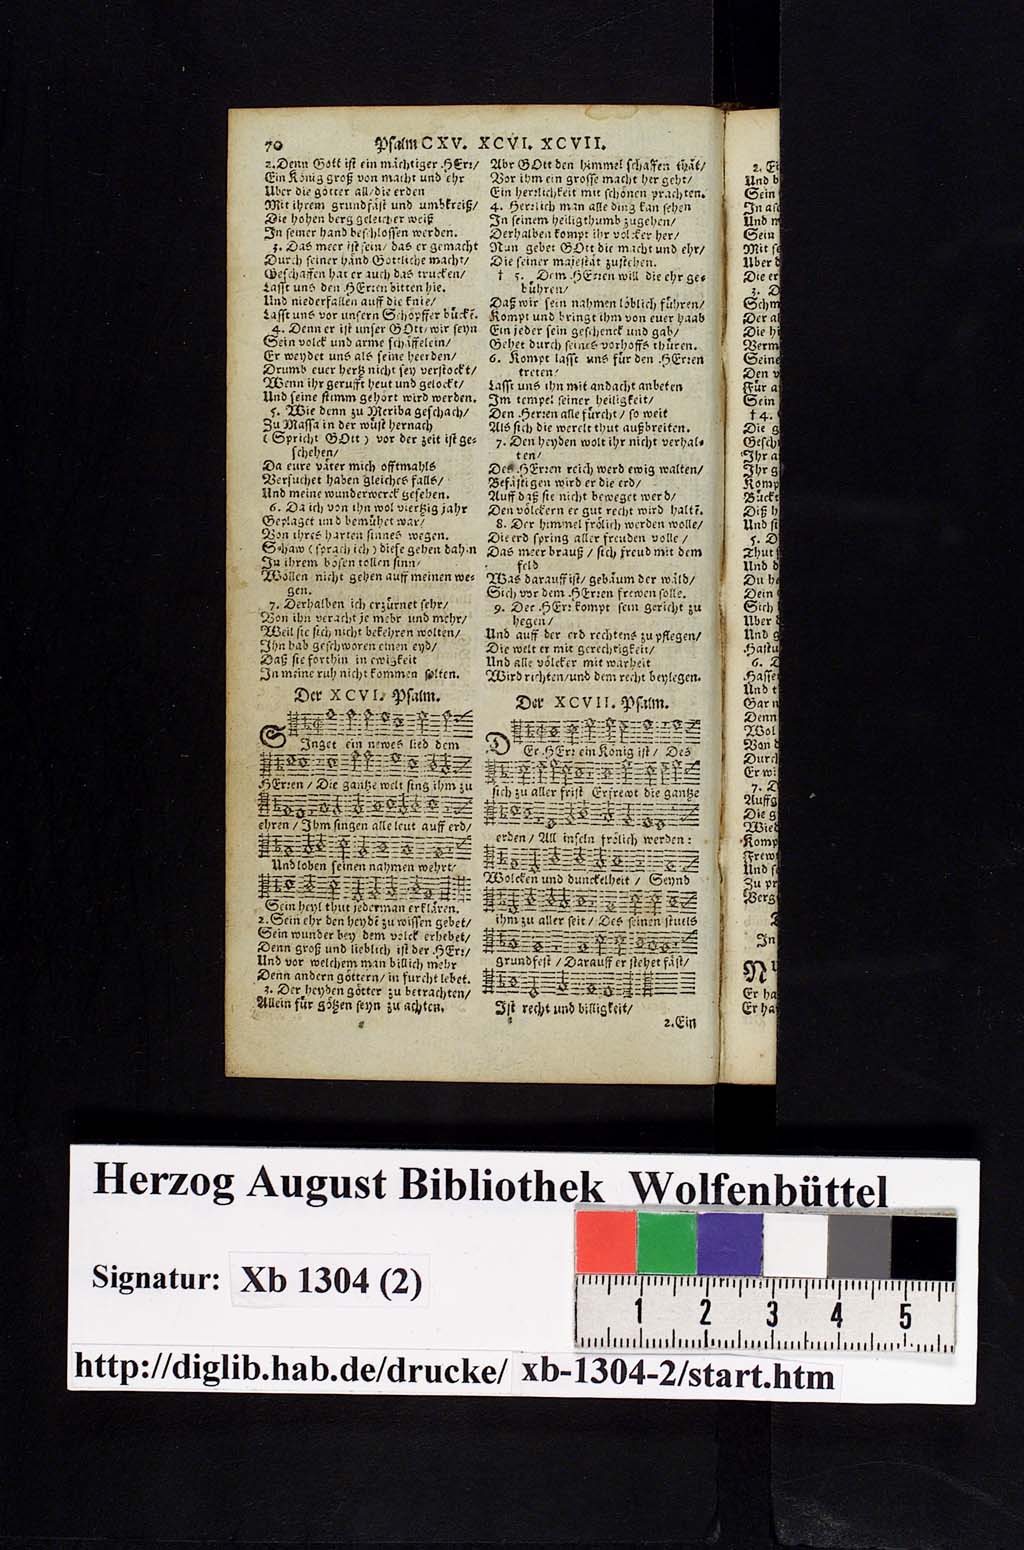 70 Psalm CXV. XCVI. XCVII.
2. Denn Gott ist ein mächtiger HErr/
Ein König groß von macht und ehr
Uber die götter all/die erden
Mit ihrem grundfäst und umbkreiß/
Die hohen berg geleicher weiß
In seiner hand beschlossen werden.
3. Das meer ist sein/ das er gemacht
Durch seiner händ Göttliche macht/
Geschaffen hat er auch das trucken/
Lasst uns den HErren bitten hie.
Und niederfallen auff die knie/
Lasst uns vor unsern Schöpffer bückē.
4. Denn er ist unser GOtt/wir seyn
Sein volck und arme schäffelein/
Er weydet uns als seine heerden/
Drumb euer hertz nicht sey verstockt/
Wenn ihr gerufft heut und gelockt/
Und seine stimm gehört wird werden.
5. Wie denn zu Meriba geschach/
Zu Massa in der wüst hernach
(Spricht GOtt) vor der zeit ist ge=
schehen/
Da eure väter mich offtmahls
Versuchet haben gleiches falls/
Und meine wunderwerck gesehen.
6. Da ich von ihn wol viertzig jahr
Geplaget und bemühet war/
Von ihres harten sinnes wegen.
Schaw (sprach ich) diese gehen dahin
In ihrem bösen tollen sinn/
Wöllen nicht gehen auff meinen we=
gen.
7. Derhalben ich erzürnet sehr/
Von ihn veracht je mehr und mehr/
Weil sie sich nicht bekehren wolten/
Ihn hab geschworen einen eyd/
Daß sie forthin in ewigkeit
In meine ruh nicht kommen solten.
Der XCVI. Psalm.
SInget ein newes lied dem
HErren/ Die gantze welt sing ihm zu
ehren/ Ihm singen alle leut auff erd/
Und loben seinen nahmen wehrt/
Sein heyl thut jederman erklären.
2. Sein ehr den heydē zu wissen gebet/
Sein wunder bey dem volck erhebet/
Denn groß und lieblich ist der HErr/
Und vor welchem man billich mehr
Denn andern göttern/in furcht lebet.
3. Der heyden götter zu betrachten/
Allein für götzen seyn zu achten.
Abr GOtt den himmel schaffen thät/
Vor ihm ein grosse macht her geht/
Ein herrlichkeit mit schönen prachten.
4. Herrlich man alle ding kan sehen
In seinem heiligthumb zugehen/
Derhalben kompt ihr völcker her/
Nun gebet GOtt die macht und ehr/
Die seiner majestät zustehen.
† 5. Dem HErren will die ehr ge=
bühren/
Daß wir sein nahmen löblich führen/
Kompt und bringt ihm von euer haab
Ein jeder sein geschenck und gab/
Gehet durch seines vorhoffs thüren.
6. Kompt lasst uns für den HErren
treten/
Lasst uns ihn mit andacht anbeten
Im tempel seiner heiligkeit/
Den Herren alle fürcht/ so weit
Als sich die werelt thut außbreiten.
7. Den heyden wolt ihr nicht verhal=
ten/
Des HErren reich werd ewig walten/
Befästigen wird er die erd/
Auff daß sie nicht beweget werd/
Den völckern er gut recht wird haltē.
8. Der himmel frölich werden wolle/
Die erd spring aller freuden volle/
Das meer brauß/ sich freud mit dem
feld
Was darauff ist/ gebäum der wäld/
Sich vor dem HErren frewen solle.
9. Der HErr kompt sein gericht zu
hegen/
Und auff der erd rechtens zu pflegen/
Die welt er mit gerechtigkeit/
Und alle völcker mit warheit
Wird richten/und dem recht beylegen.
Der XCVII. Psalm.
DEr HErr ein König ist/ Des
sich zu aller frist Erfrewt die gantze
erden/ All inseln frölich werden:
Wolcken und dunckelheit/ Seynd
ihm zu aller seit/ Des seinen stuels
grundfest/ Darauff er stehet fäst/
Ist recht und billigkeit/
2. Ein
Herzog August Bibliothek Wolfenbüttel
Signatur: Xb 1304 (2)
1 2 3 4 5
http://diglib.hab.de/drucke/ xb-1304-2/start.htm